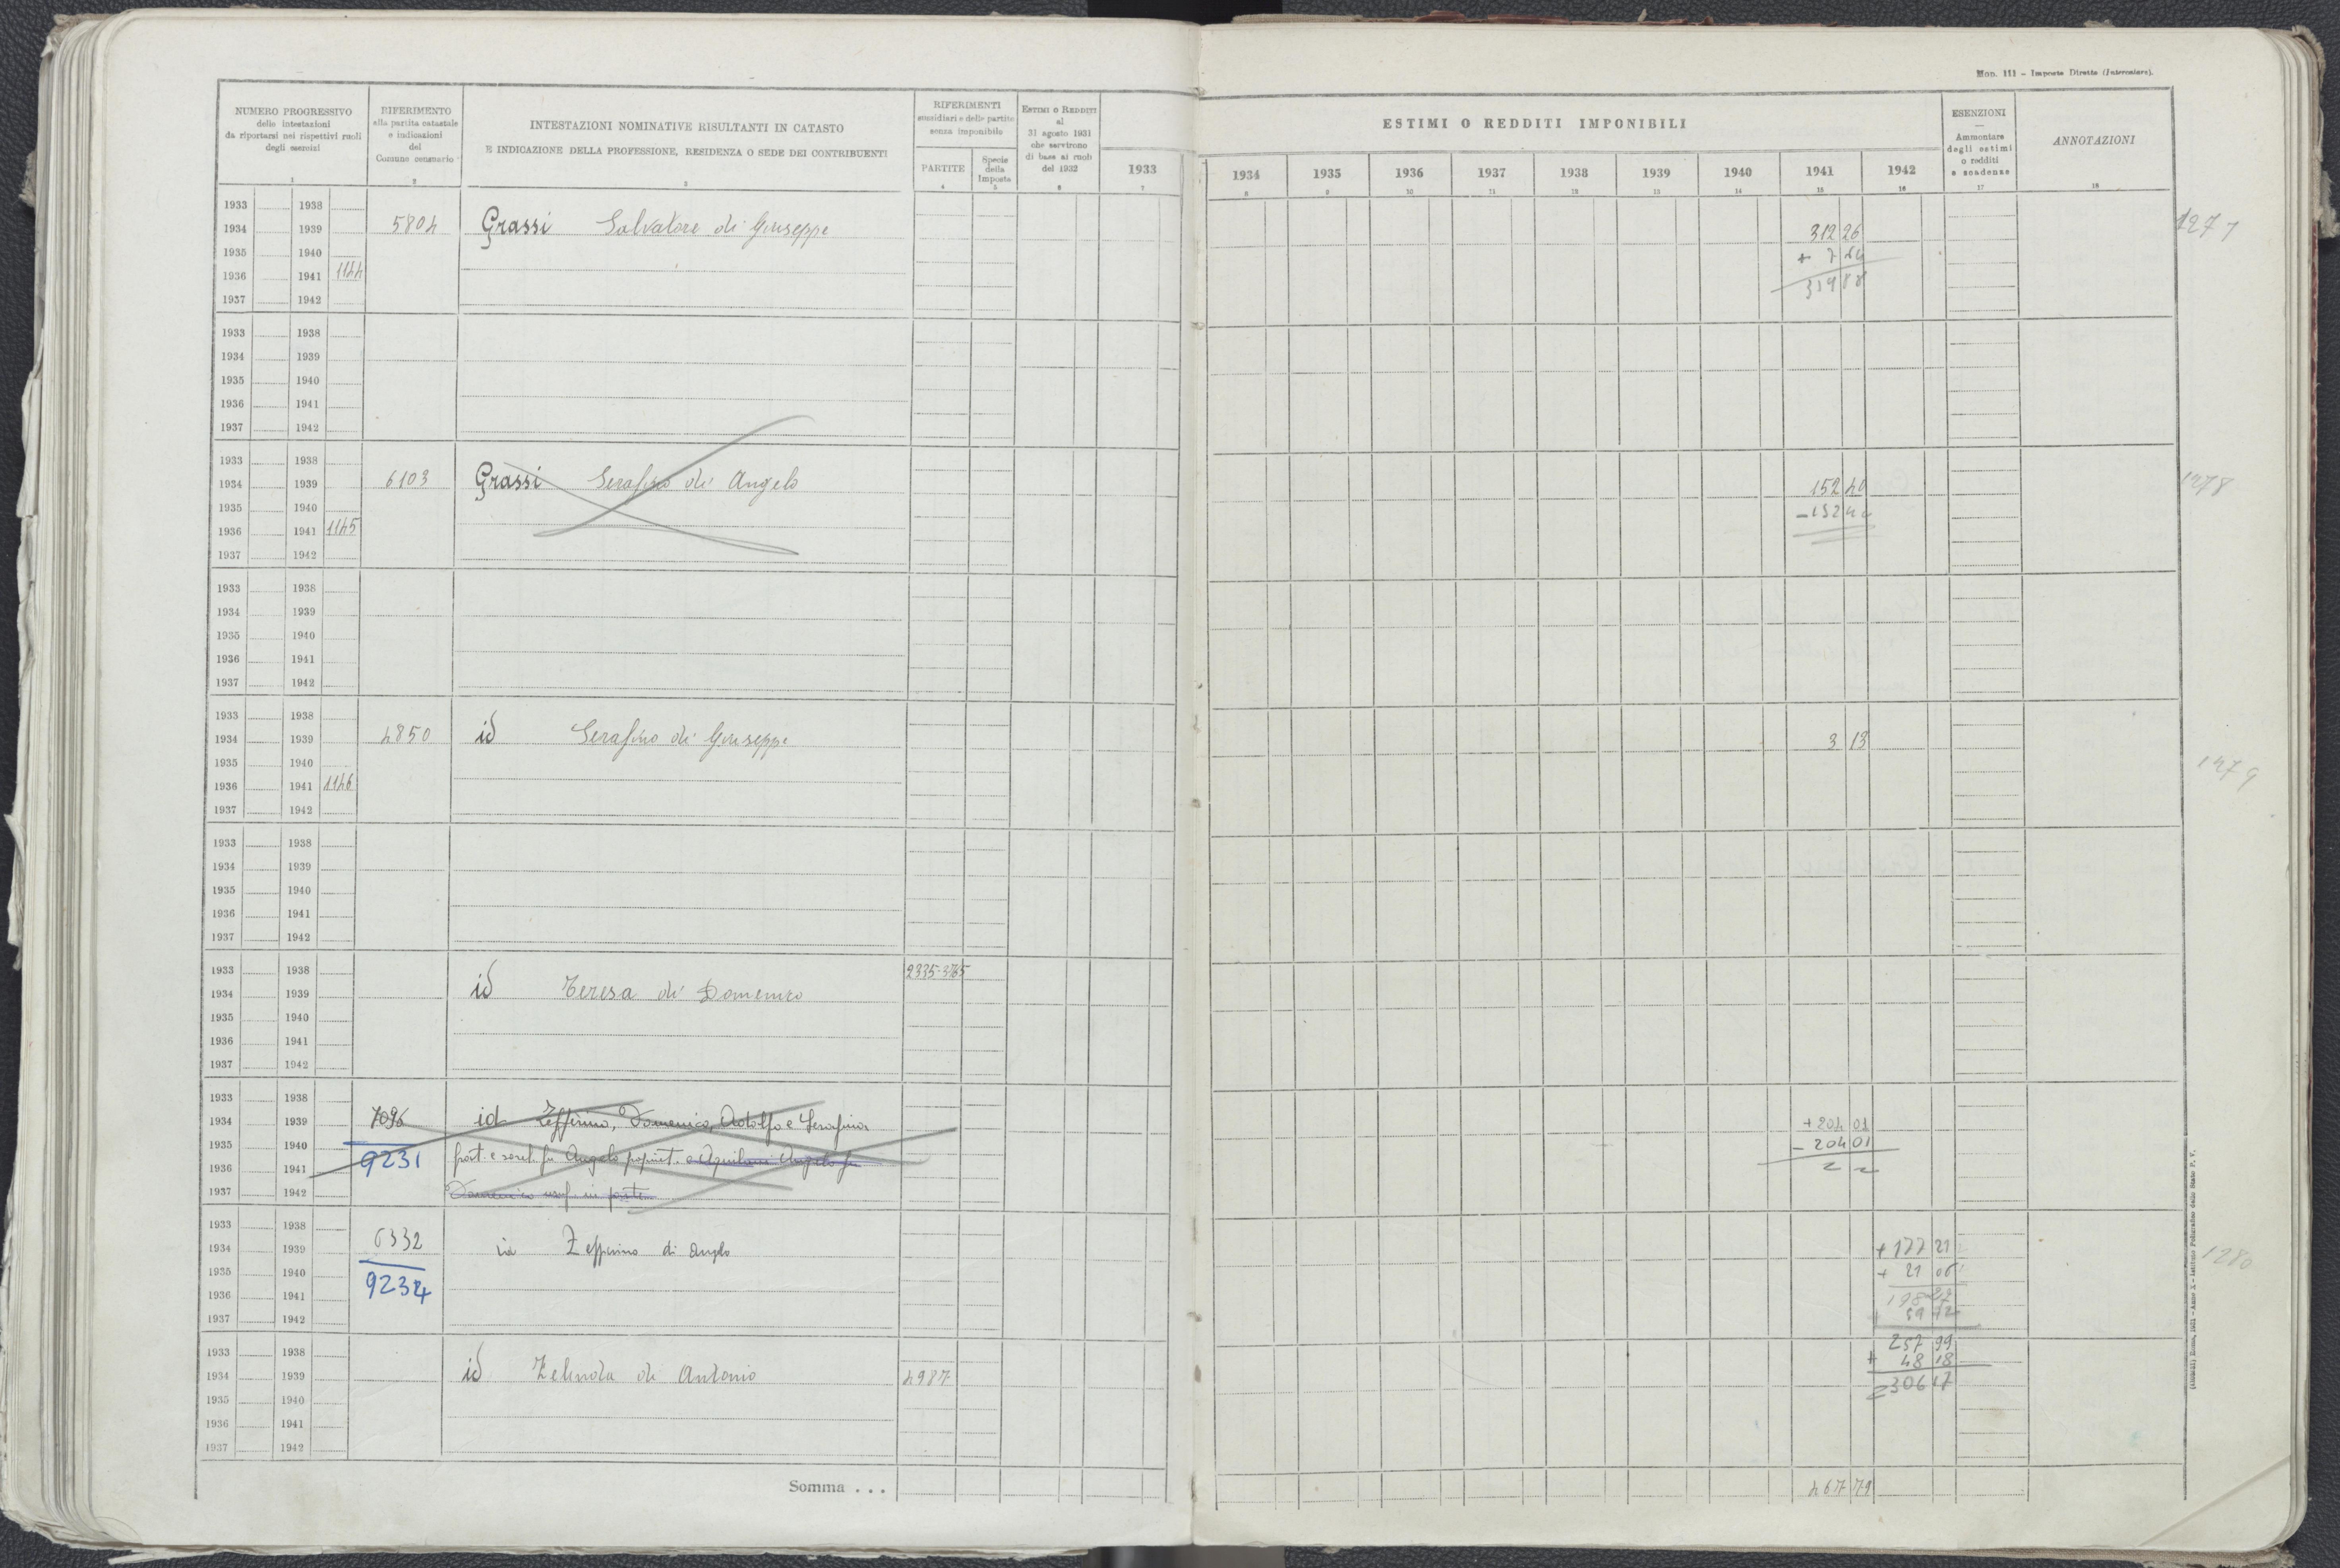 Mod. 111 – Imposte Dirette (Intercalare).
NUMERO PROGRESSIVO
delle intestazioni
da riportarsi nei rispettivi ruoli
degli esercizi
1
RIFERIMENTO
alla partita catastale
e indicazioni
del
Comune censuario
2
INTESTAZIONI NOMINATIVE RISULTANTI IN CATASTO
E INDICAZIONE DELLA PROFESSIONE, RESIDENZA O SEDE DEI CONTRIBUENTI
3
RIFERIMENTI
sussidiari e delle partite
senza imponibile
PARTITE
4
Specie
della
Imposta
5
ESTIMI O REDDITI
al
31 agosto 1931
che servirono
di base ai ruoli
del 1932
6
1933
7
ESTIMI O REDDITI IMPONIBILI
1934 1935 1936 1937 1938 1939 1940 1941 1942
8 9 10 11 12 13 14 15 16
ESENZIONI
—
Ammontare
degli estimi
o redditi
e scadenze
17
ANNOTAZIONI
18
1933 1938
1934 1939 5804 Grassi Salvatore di Giuseppe 312 26 1277
1935 1940 + 7
1936 1941 1144 319 88
1937 1942
1933 1938
1934 1939
1935 1940
1936 1941
1937 1942
1933 1938
1934 1939 6103 Grassi Serafino di Angelo 152 40 1278
1935 1940 – 152 40
1936 1941 1145
1937 1942
1933 1938
1934 1939
1935 1940
1936 1941
1937 1942
1933 1938
1934 1939 4850 id Serafino di Giuseppe 3 13
1935 1940 1279
1936 1941 1146
1937 1942
1933 1938
1934 1939
1935 1940
1936 1941
1937 1942
1933 1938 2335-3765
1934 1939 id Teresa di Domenico
1935 1940
1936 1941
1937 1942
1933 1938
1934 1939 7096 id Zefferino, Domenico, Adolfo e Serafina + 204 01
1935 1940 – 204 01
1936 1941 9231 frat. e sorel. fu Angelo propriet. e Aquilani Angela fu
1937 1942 Domenico usuf. in parte
1933 1938 6332
1934 1939 id Zefferino di Angelo + 177 21 1280
1935 1940 9234 + 21 06
1936 1941 198 27
1937 1942 + 59 72
1933 1938 257 99
+ 48 18
1934 1939 id Zelinda di Antonio 4987 306 17
1935 1940
1936 1941
1937 1942
Somma . . . 467 79